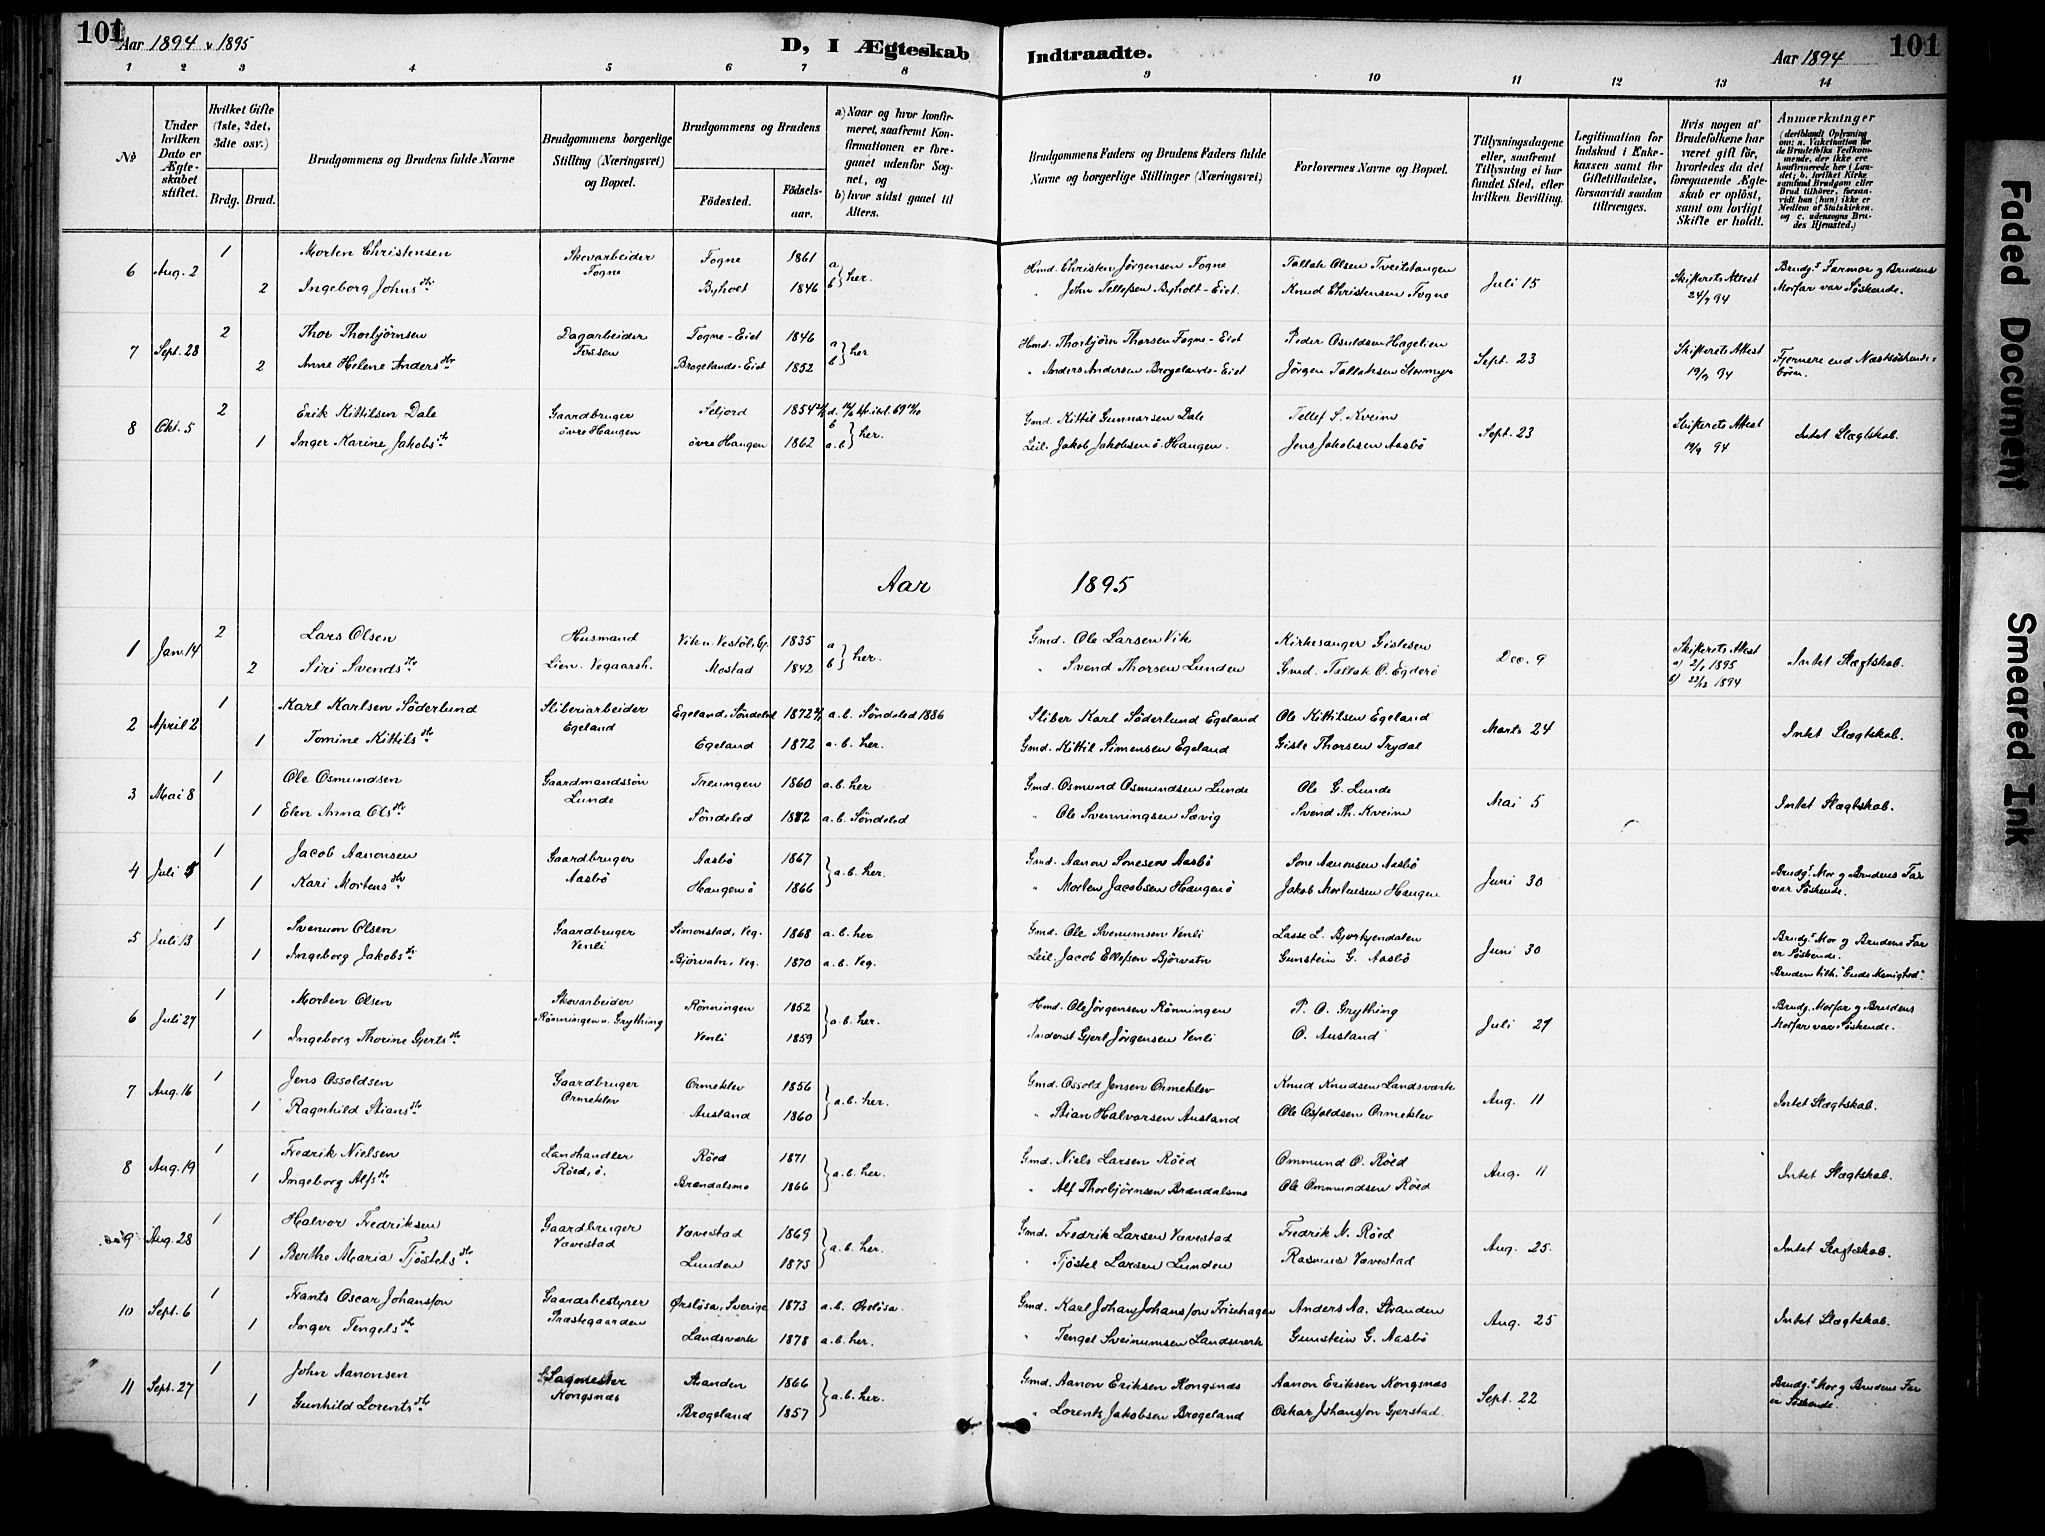 101 Aar 1894 & 1895 D, I Ægteskab Indtraadte. Aar 1894 101
1 2 3 4 5 6 7 8 9 10 11 12 13 14
No
Under hvilken Dato er Ægteskabet stiftet.
Hvilket Gifte (1ste, 2det, 3dte osv.)
Brdg. Brud.
Brudgommens og Brudens fulde Navne
Brudgommens borgerlige Stilling (Næringsvei) og Bopæl.
Brudgommens og Brudens
Fødested.
Fødselsaar.
a) Naar og hvor konfirmeret, saafremt Konfirmationen er foregaaet udenfor Sognet, og
b) hvor sidst gaaet til Alters.
Brudgommens Faders og Brudens Faders fulde Navne og borgerlige Stillinger (Næringsvei)
Forlovernes Navne og Bopæl.
Tillysningsdagene eller, saafremt Tillysning ei har fundet Sted, efter hvilken Bevilling.
Legitimation for Indskud i Enkekassen samt for Giftetilladelse, forsaavidt saadan tiltrænges.
Hvis nogen af Brudefolkene har været gift før, hvorledes da det foregaaende Ægteskab er opløst, samt om lovligt Skifte er holdt.
Anmærkninger
(deriblandt Oplysning om: a. Vakcination for de Brudefolks Vedkommende, der ikke ere konfirmerede her i Landet; b. hvilket Kirkesamfund Brudgom eller Brud tilhører, forsaavidt han (hun) ikke er Medlem af Statskirken, og c. udensogns Brudes Hjemsted.)
6 Aug. 2 1 Morten Christensen Skovarbeider Fogne Fogne 1861 a b } her. Hmd. Christen Jørgensen Fogne Tallak Olsen Tveittangen Juli 15 Skifterets Attest 24/7 94 Brudg.s Farmor og Brudens Morfar var Søskende.
2 Ingeborg Johns dtr Byholt 1846 " John Tellefsen Byholt-Eiet. Knud Christensen Fogne
7 Sept. 28 2 Thor Thorbjørnsen Dagarbeider Fossen Fogne-Eiet 1846 a b } her Hmd. Thorbjørn Thorsen Fogne-Eiet Peder Osuldsen Hagelien Sept. 23 Skifterets Attest 19/9 94 Fjernere end Næstsøskendebørn.
2 Anne Helene Anders dtr Brogelands-Eiet 1852 " Anders Andersen Brogelands-Eiet Jörgen Tallaksen Stormyr
8 Okt. 5 2 Erik Kittilsen Dale Gaardbruger övre Haugen Seljord 1854 b } her. Gmd. Kittil Gunnarsen Dale Tellef S. Kveim Sept. 23 Skifterets Attest 19/9 94 Intet Slægtskab.
1 Inger Karine Jakobs dtr övre Haugen 1862 a. b Leil. Jakob Jakobsen ö. Haugen. Jens Jakobsen Aasbö
Aar 1895
1 Jan. 14 2 Lars Olsen Husmand Lien. Vegaarsh. Vik u. Vestöl, Gj. 1835 a b } her. Gmd. Ole Larsen Vik Kirkesanger Gislesen Dec. 9 Skifterets Attest a) 2/1 1895 b) 22/12 1894 Intet Slægtskab.
2 Siri Svends dtr Mostad 1842 " Svend Thorsen Lunden Gmd. Tallak O. Egderö
2 April 2 1 Karl Karlsen Söderlund Sliberiarbeider Egeland Egeland, Söndeled 1872 a. b. Söndeled 1886 Sliber Karl Söderlund Egeland Ole Kittilsen Egeland Marts 24 Intet Slægtskab.
1 Tomine Kittils dtr Egeland 1872 a. b. her. Gmd. Kittil Simensen Egeland Gisle Thorsen Trydal
3 Mai 8 1 Ole Osmundsen Gaardmandssön Lunde Treungen 1860 a. b. her Gmd. Osmund Osmundsen Lunde Ole G. Lunde Mai 5 Intet Slægtskab.
1 Elen Anna Ols dtr Söndeled 1872 a. b. Söndeled " Ole Svenningsen Sævig Svend Th. Kveim
4 Juli 1 Jacob Aanonsen Gaardbruger Aasbö Aasbö 1867 } a. b. her. Gmd. Aanon Sonesen Aasbö Sone Aanonsen Aasbö Juni 30 Brudg.s Mor og Brudens Far var Søskende.
1 Kari Mortens dtr Haugen ö 1866 " Morten Jacobsen Haugen ö Jakob Mortensen Haugen
5 Juli 13 1 Svenum Olsen Gaardbruger Venli Simonstad, Veg. 1868 a. b. her Gmd. Ole Svenumsen Venli Lasse L. Bjorkjendalen Juni 30 Brudg.s Mor og Brudens Far er Søskende.
1 Ingeborg Jakobs dtr Björvatn, Veg. 1870 a. b. Veg. Leil. Jacob Ellefsen Björvatn Gunstein G. Aasbö Bruden tilh. "Guds Menighed".
6 Juli 27 1 Morten Olsen Skovarbeider Rönningen u. Grytting Rönningen 1852 } a. b. her. Hmd. Ole Jørgensen Rönningen P. O. Grytting Juli 21 Brudg. Morfar og Brudens Morfar var Søskende.
1 Ingeborg Thorine Gjerts dtr Venli 1859 Inderst Gjert Jörgensen Venli O. Ausland
7 Aug. 16 1 Jens Ossoldsen Gaardbruger Ormeklev Ormeklev 1856 } a. b. her. Gmd. Ossold Jensen Ormeklev Knud Knudsen Landsverk Aug. 11 Intet Slægtskab.
1 Ragnhild Stians dtr Ausland 1860 " Stian Halvorsen Ausland Ole Osfoldsen Ormeklev
8 Aug. 19 1 Fredrik Nielsen Landhandler Röed, ö. Röed 1871 } a. b. her. Gmd. Niels Larsen Röed Ommund O. Röed Aug. 11 Intet Slægtskab.
1 Ingeborg Alfs dtr Brændalsmo 1866 " Alf Thorbjörnsen Brændalsmo Ole Ommundsen Röed
9 Aug. 28 1 Halvor Fredriksen Gaardbruger Vævestad Vævestad 1869 } a. b. her. Gmd. Fredrik Larsen Vævestad Fredrik N. Röed Aug. 25. Intet Slægtskab.
1 Berthe Maria Tjöstels dtr Lunden 1873 " Tjöstel Larsen Lunden Rasmus Vævestad
10 Sept. 6 1 Frants Oscar Johansson Gaardsbestyrer Præstegaarden Örslösa, Sverige 1873 a. b. Örslösa. Gmd. Karl Johan Johansson Frisehagen Anders Aa. Stranden Aug. 25 Intet Slægtskab.
1 Inger Tengels dtr Landsverk 1878 a. b. her. " Tengel Sveinumsen Landsverk Gunstein G. Aasbö
11 Sept. 27 1 John Aanonsen Sagmester Kongsnæs Stranden 1866 } a. b. her. Gmd. Aanon Eriksen Kongsnæs Aanon Eriksen Kongsnæs Sept. 22 Brudg.s Mor og Brudens Far er Søskende.
1 Gunhild Lorents dtr Brogeland 1857 " Lorents Jakobsen Brogeland Oskar Johansson Gjerstad.
Faded Document
Smeared Ink